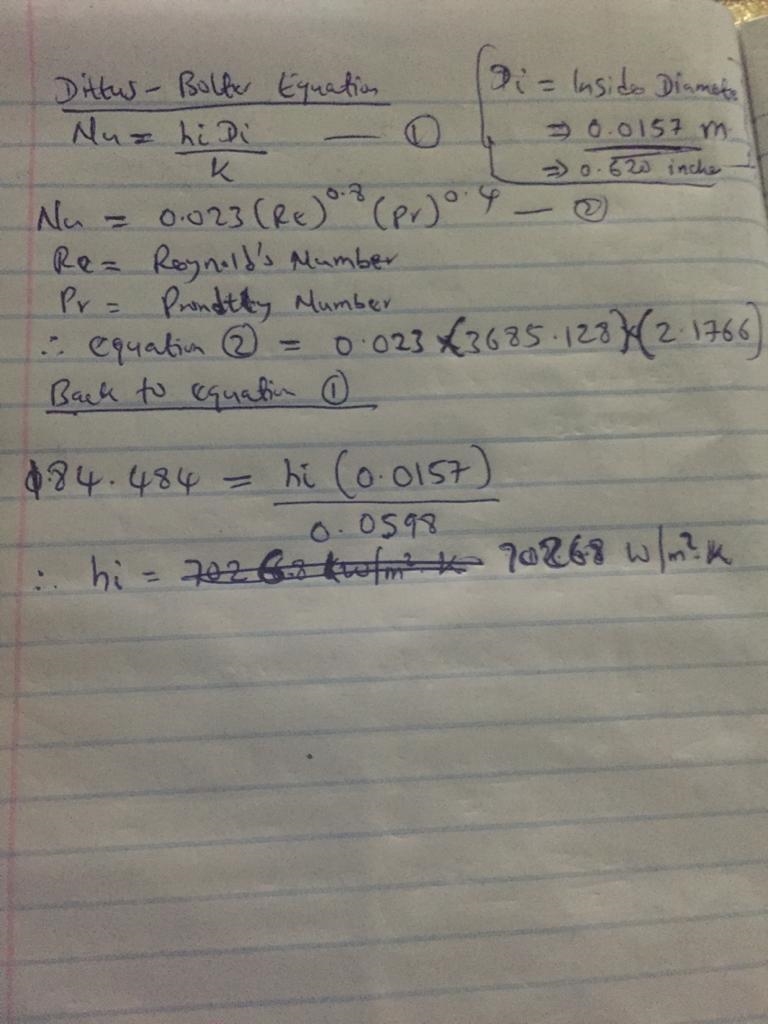 Dittus - Bolter Equation
Nu = hi Di / K — ①
Di = Inside Diameter
⇒ 0.0157 m
⇒ 0.620 inche
Nu = 0.023 (Re)^0.8 (Pr)^0.4 — ②
Re = Reynold's Number
Pr = Number
∴ equation ② = 0.023 × (3685.128) × (2.1766)
Back to equation ①
184.484 = hi (0.0157) / 0.0598
∴ hi = 70268 W/m².K